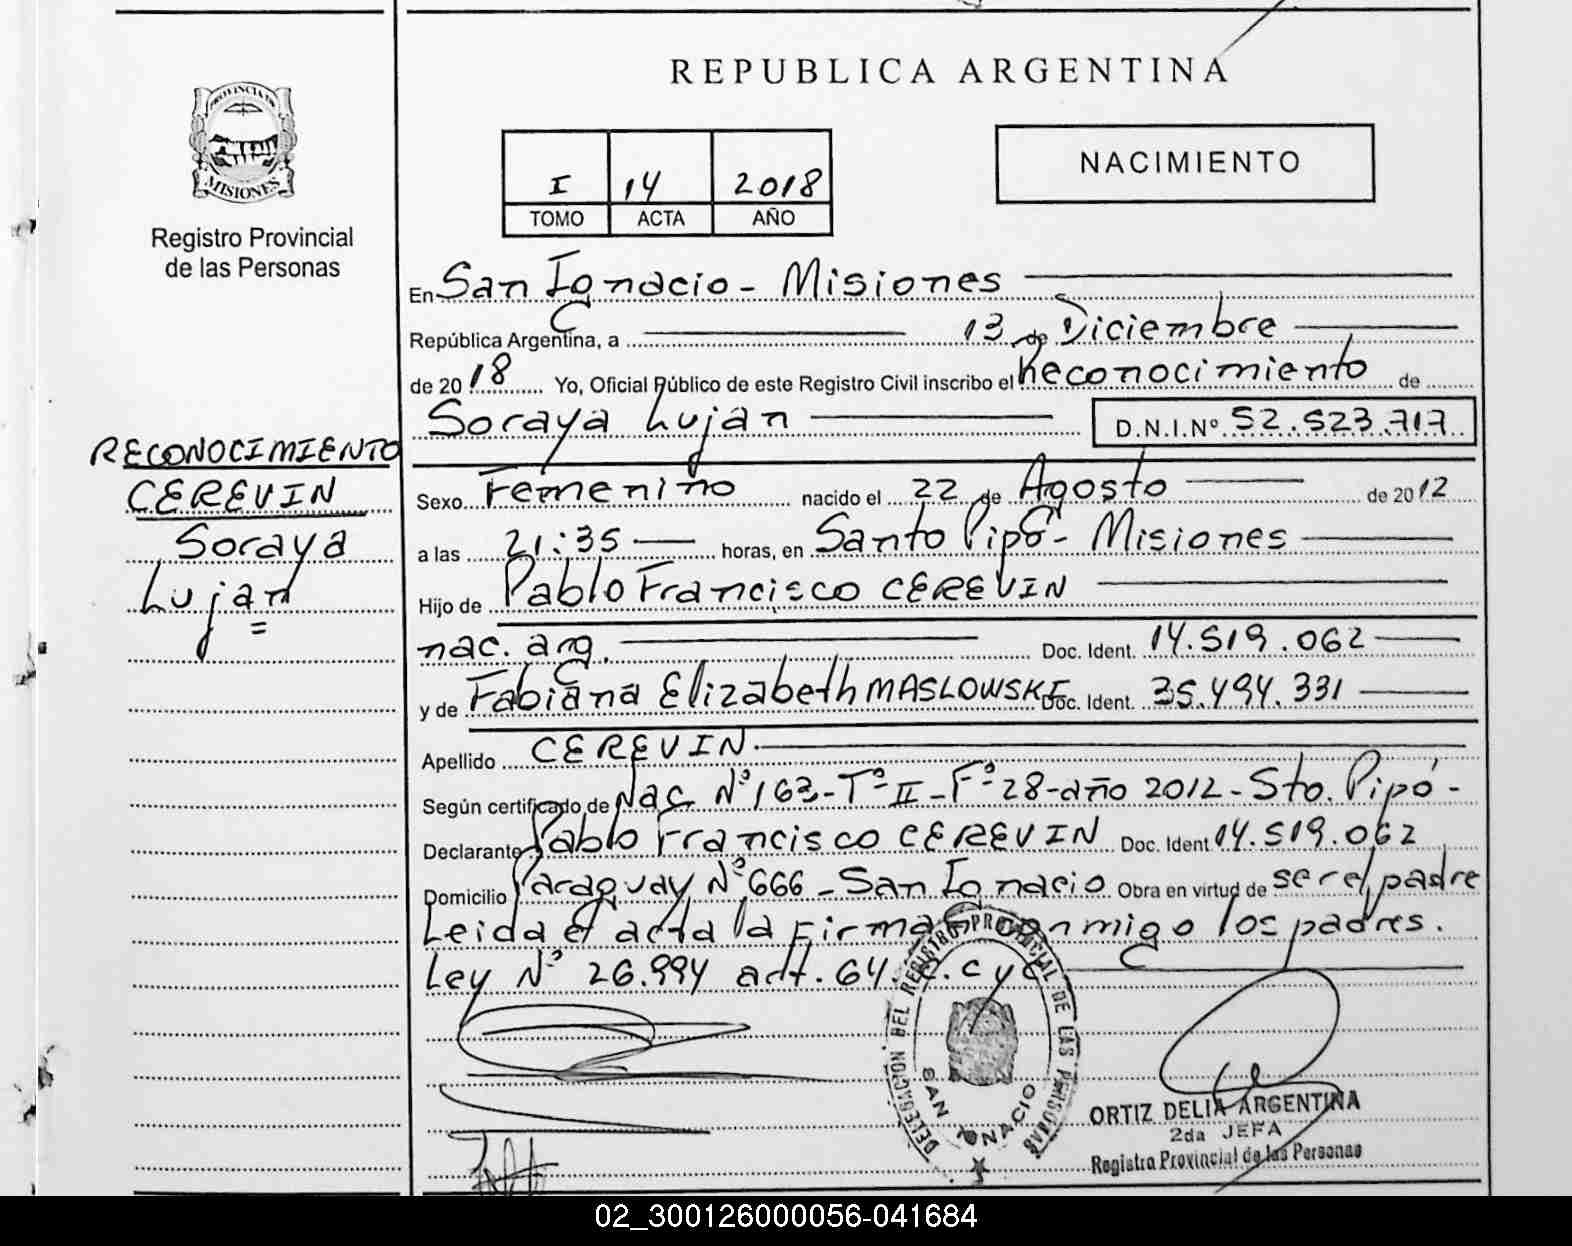 REPUBLICA ARGENTINA
PROVINCIA DE
MISIONES
Registro Provincial
de las Personas
I 14 2018
TOMO ACTA AÑO
NACIMIENTO
RECONOCIMIENTO
CEREVIN
Soraya
Lujan
En San Ignacio - Misiones
República Argentina, a 13 de Diciembre
de 2018 Yo, Oficial Público de este Registro Civil inscribo el Reconocimiento de
Soraya Lujan D.N.I.Nº 52.523.717
Sexo Femenino nacido el 22 de Agosto de 2012
a las 21:35 horas, en Santo Pipó - Misiones
Hijo de Pablo Francisco CEREVIN
nac. arg. Doc. Ident. 14.519.062
y de Fabiana Elizabeth MASLOWSKI Doc. Ident. 35.494.331
Apellido CEREVIN
Según certificado de Nac Nº 163 - Tº II - Fº 28 - año 2012 - Sto. Pipó -
Declarante Pablo Francisco CEREVIN Doc. Ident 14.519.062
Domicilio Paraguay Nº 666 - San Ignacio Obra en virtud de ser el padre
Leida el acta la firman conmigo los padres.
Ley Nº 26.994 art. 64 C.C y C
DELEGACION DEL REGISTRO PROVINCIAL DE LAS PERSONAS
SAN IGNACIO
ORTIZ DELIA ARGENTINA
2da JEFA
Registro Provincial de las Personas
02_300126000056-041684